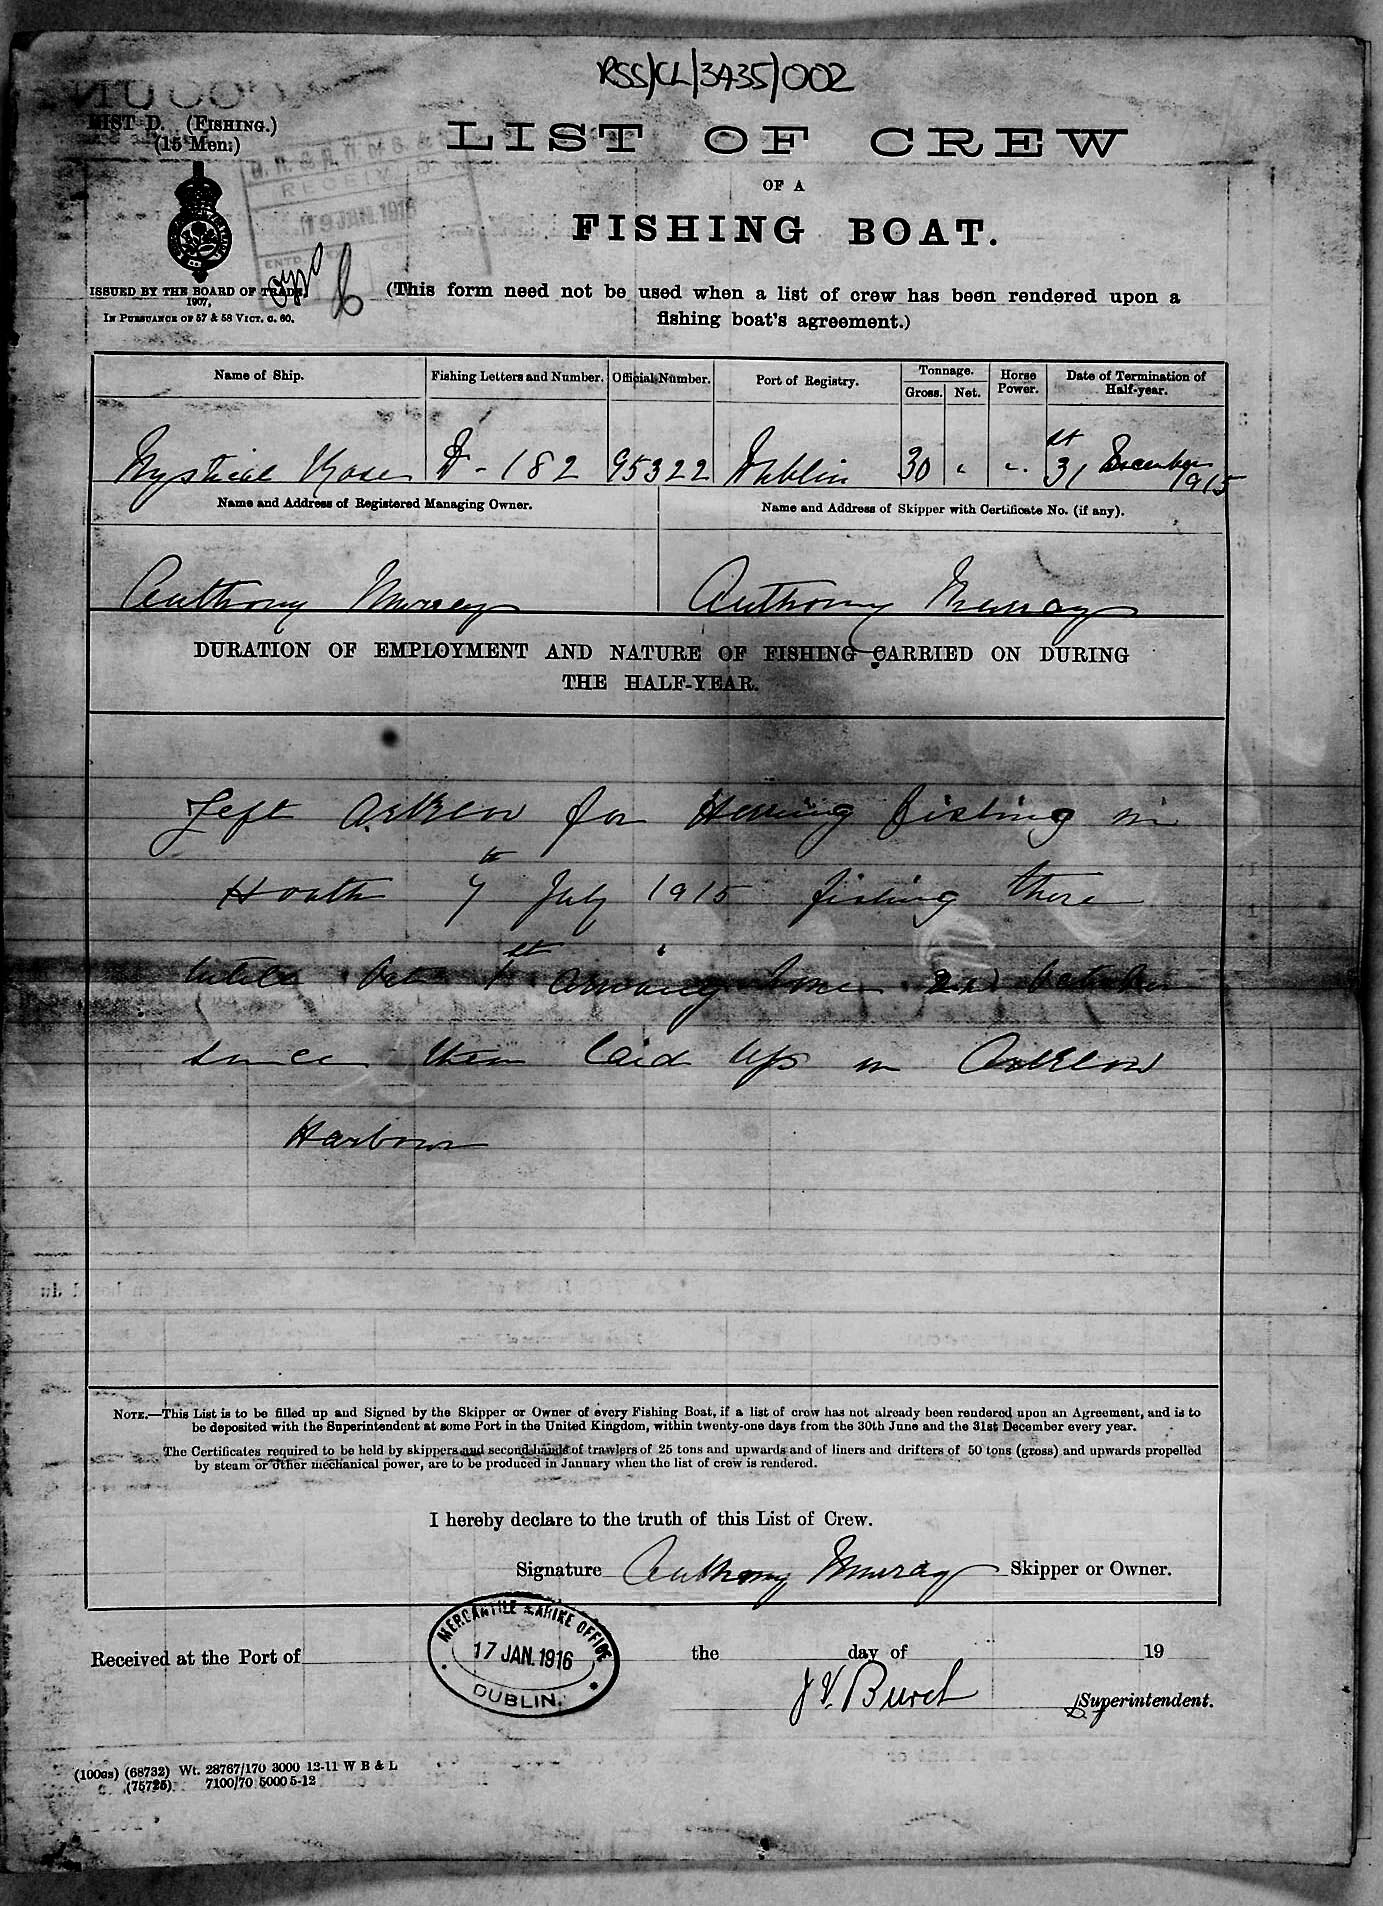 RSS/CL/3435/002
LIST D. (FISHING.)
(15 Men.)
LIST OF CREW
OF A
FISHING BOAT.
RECEIVED
19 JAN. 1916
ISSUED BY THE BOARD OF TRADE,
1907,
IN PURSUANCE OF 57 & 58 VICT. C. 60.
(This form need not be used when a list of crew has been rendered upon a
fishing boat's agreement.)
Name of Ship. Fishing Letters and Number. Official Number. Port of Registry. Tonnage. Gross. Net. Horse Power. Date of Termination of Half-year.
Mystical Rose D - 182 95322 Dublin 30 " " 31st December 1915
Name and Address of Registered Managing Owner. Name and Address of Skipper with Certificate No. (if any).
Anthony Murray Anthony Murray
DURATION OF EMPLOYMENT AND NATURE OF FISHING CARRIED ON DURING
THE HALF-YEAR.
Left Arklow for Herring fishing in
Howth 7th July 1915 fishing there
until Oct 1st arriving home 2nd October
since then laid up in Arklow
Harbour
NOTE.—This List is to be filled up and Signed by the Skipper or Owner of every Fishing Boat, if a list of crew has not already been rendered upon an Agreement, and is to
be deposited with the Superintendent at some Port in the United Kingdom, within twenty-one days from the 30th June and the 31st December every year.
The Certificates required to be held by skippers and second hands of trawlers of 25 tons and upwards and of liners and drifters of 50 tons (gross) and upwards propelled
by steam or other mechanical power, are to be produced in January when the list of crew is rendered.
I hereby declare to the truth of this List of Crew.
Signature Anthony Murray Skipper or Owner.
MERCANTILE MARINE OFFICE
17 JAN. 1916
DUBLIN.
Received at the Port of the day of 19
J V. Burch Superintendent.
(100GS) (68732) Wt. 28767/170 3000 12-11 W B & L
(75725) 7100/70 5000 5-12